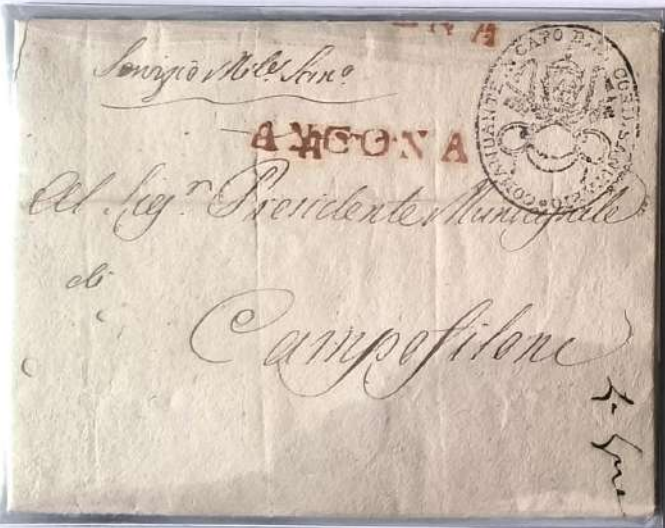 NA
Servizio Mil.e
ANCONA
COMANDANTE IN CAPO DEL CORD. SANI
Al Sig.r Presidente Municipale
di
Campofilone